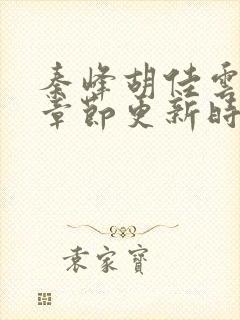 秦峰胡佳雲
章節更新時
袁家寶